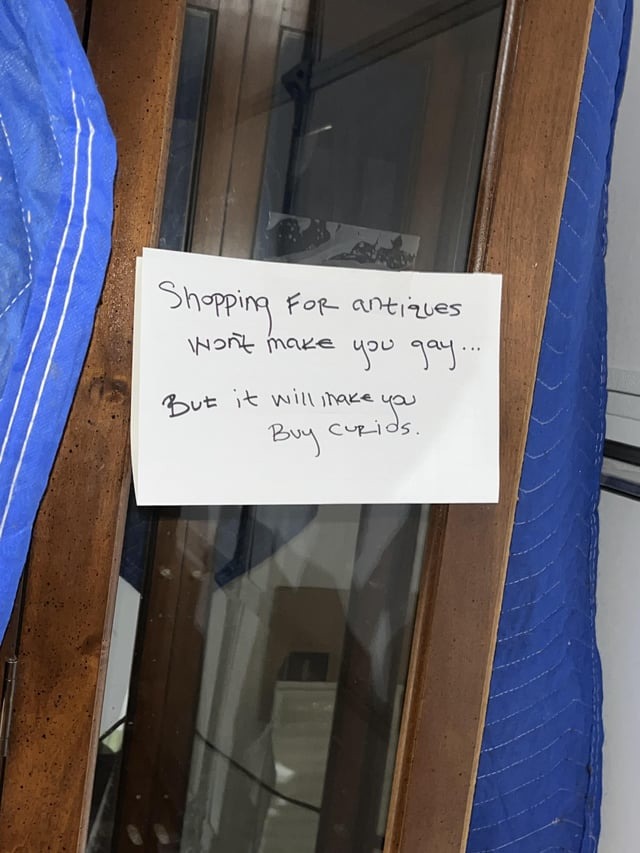 Shopping For antiques
won't make you gay...
But it will make you
Buy curios.